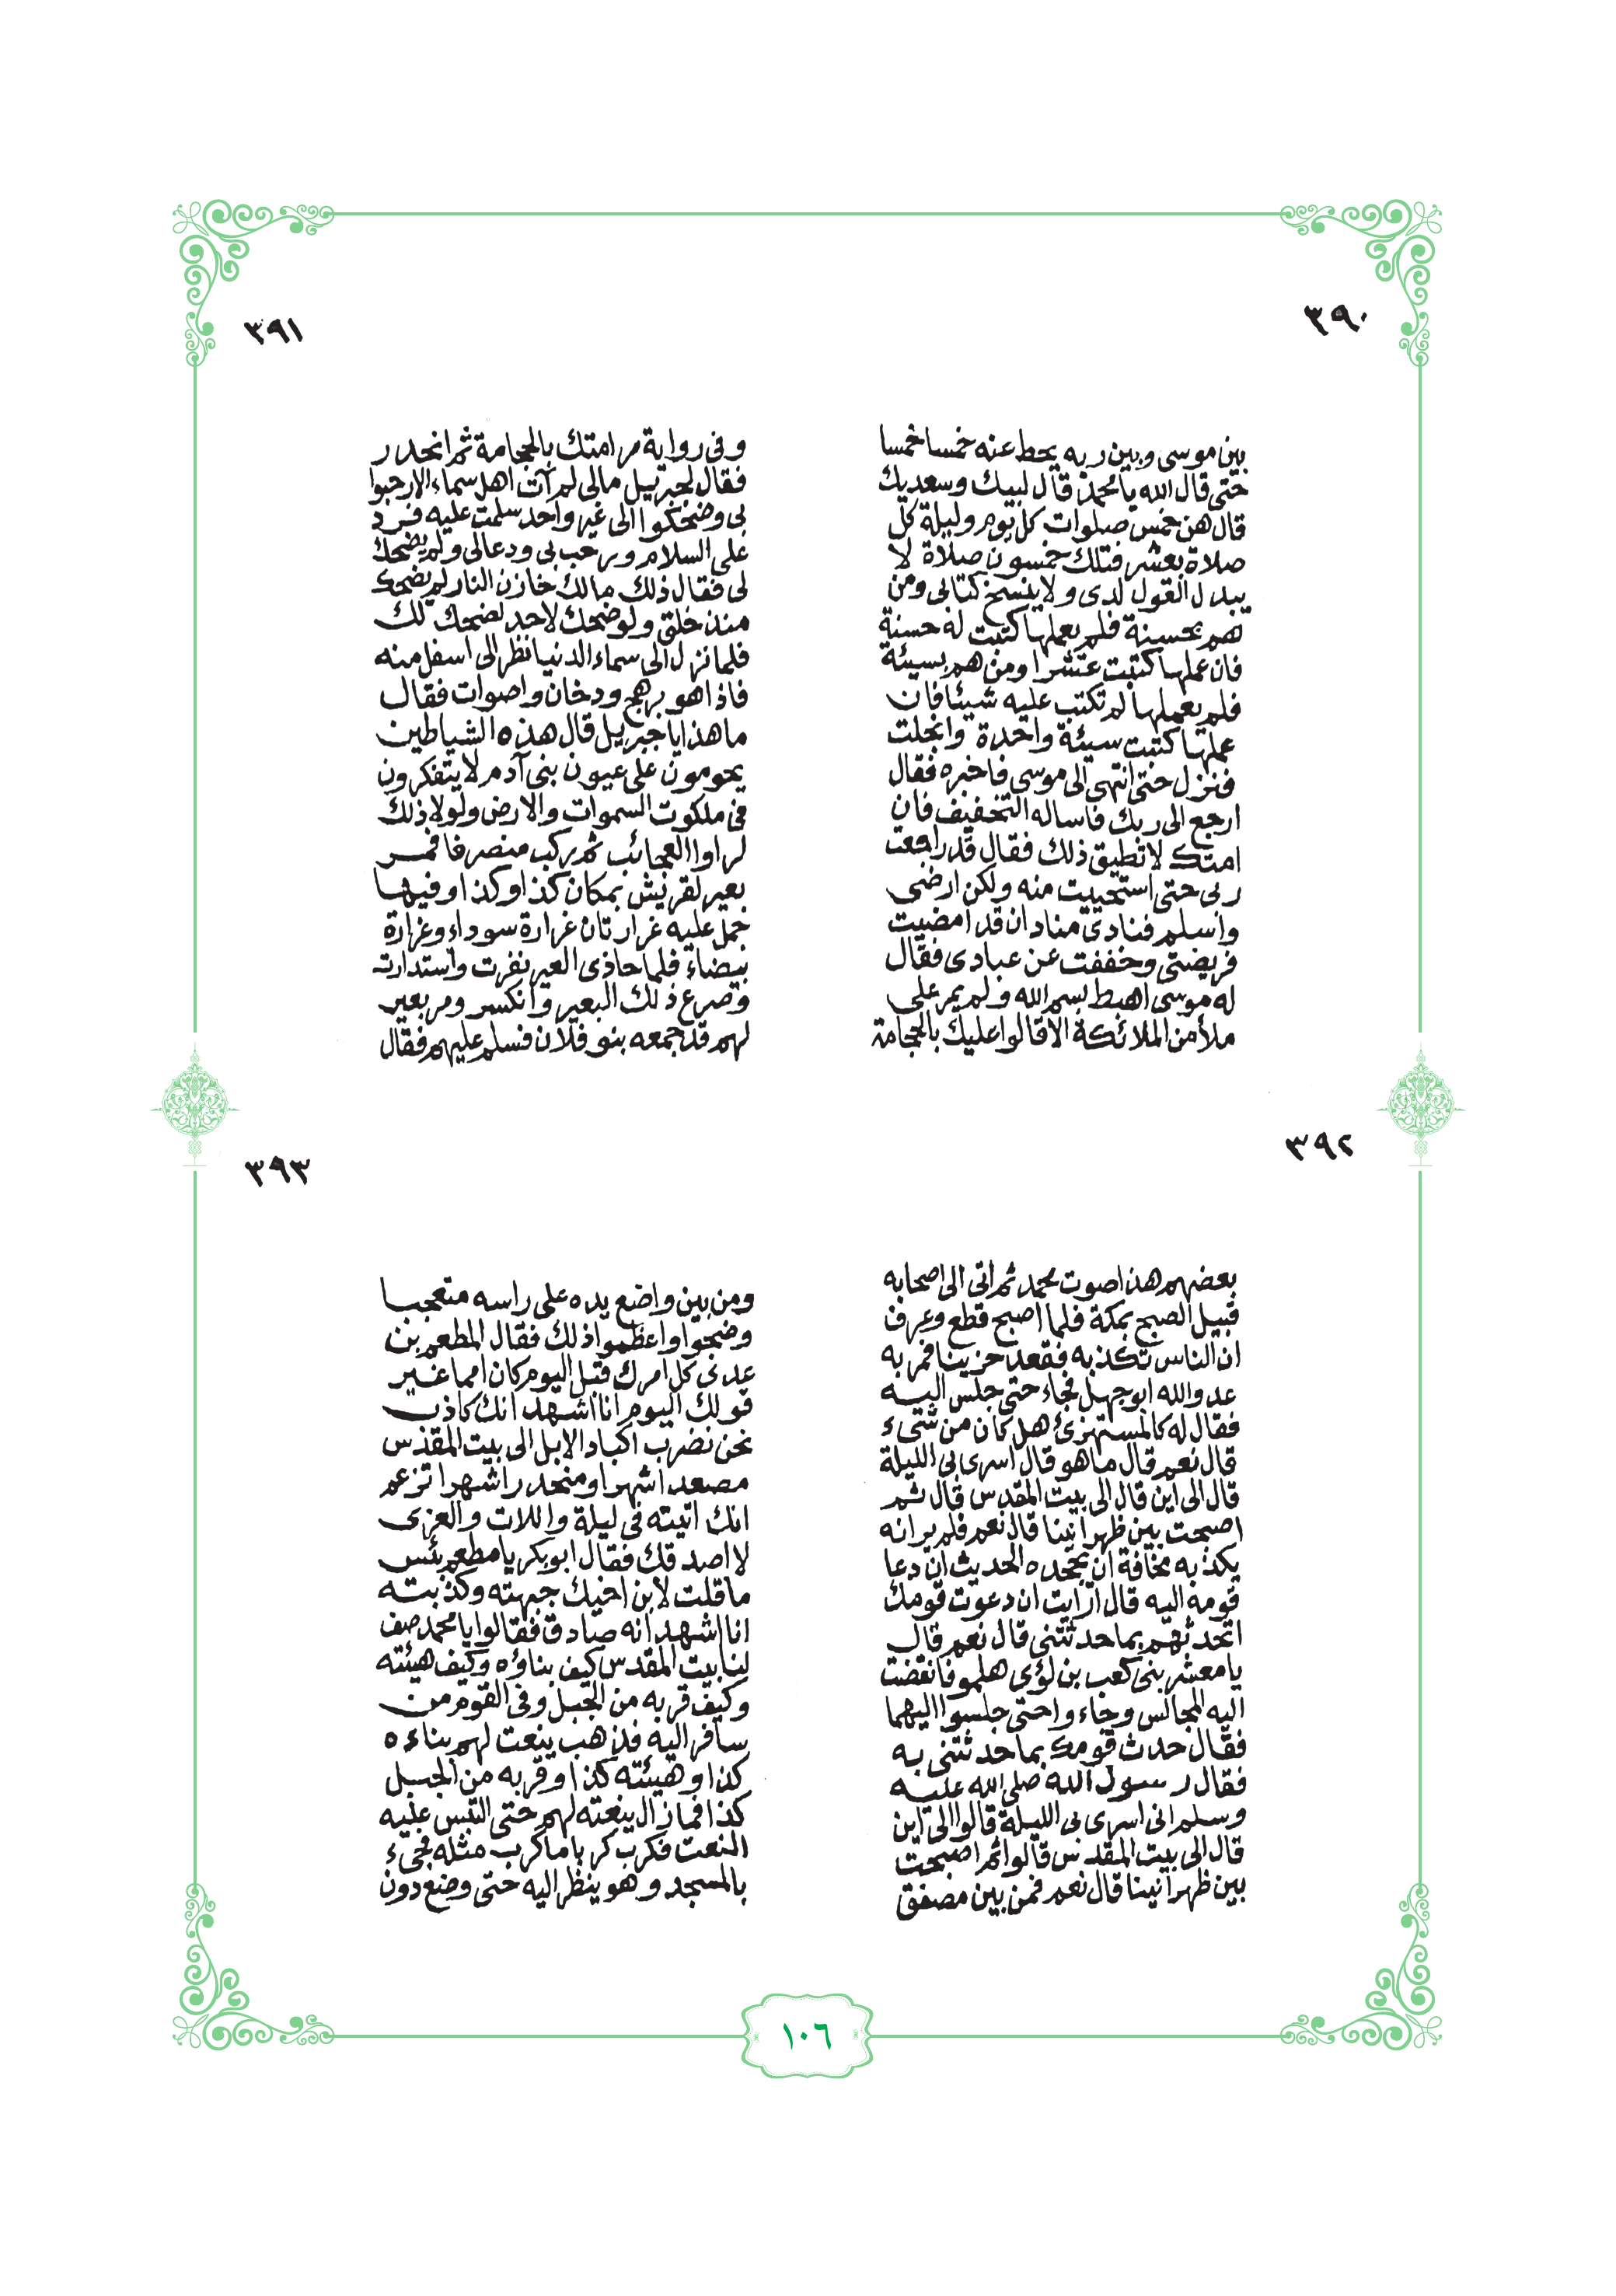 ٣٩٠
بين موسى وبين ربه يحط عنه خمسا خمسا
حتى قال الله يا محمد قال لبيك وسعديك
قال هن خمس صلوات كل يوم وليلة كل
صلاة بعشر فتلك خمسون صلاة لا
يبدل القول لدى ولا ينسخ كتابى ومن
هم بحسنة فلم يعملها كتبت له حسنة
فان عملها كتبت عشرا ومن هم بسيئة
فلم يعملها لم تكتب عليه شيئا فان
عملها كتبت سيئة واحدة وانجلت
فنزل حتى انتهى الى موسى فاخبره فقال
ارجع الى ربك فاساله التخفيف فان
امتك لا تطيق ذلك فقال قد راجعت
ربى حتى استحييت منه ولكن ارضى
واسلم فنادى مناد ان قد امضيت
فريضتى وخففت عن عبادى فقال
له موسى اهبط بسم الله ولم يمر على
ملأ من الملائكة الا قالوا عليك بالحجامة
٣٩١
وفى رواية مر امتك بالحجامة ثم انحدر
فقال لجبريل مالى لم آت اهل سماء الا رحبوا
بى وضحكوا الى غير واحد سلمت عليه فرد
على السلام ورحب بى ودعالى ولم يضحك
لى فقال ذلك مالك خازن النار لم يضحك
منذ خلق ولو ضحك لاحد لضحك لك
فلما نزل الى سماء الدنيا نظر الى اسفل منه
فاذا هو برهج ودخان واصوات فقال
ما هذا يا جبريل قال هذه الشياطين
يحومون على عيون بنى آدم لا يتفكرون
فى ملكوت السموات والارض ولولا ذلك
لراوا العجائب ثم ركب منصرفا فمر
بعير لقريش بمكان كذا وكذا وفيها
جمل عليه غرارتان غرارة سوداء وغرارة
بيضاء فلما حاذى العير نفرت واستدارت
وصرع ذلك البعير وانكسر ومر بعير
لهم قد جمعه بنو فلان فسلم عليهم فقال
٣٩٢
بعضهم هذا صوت محمد ثم اتى الى اصحابه
قبيل الصبح بمكة فلما اصبح قطع وعرف
ان الناس تكذبه فقعد حزينا فمر به
عدو الله ابو جهل فجاء حتى جلس اليه
فقال له كالمستهزئ هل كان من شىء
قال نعم قال ما هو قال اسرى بى الليلة
قال الى اين قال الى بيت المقدس قال ثم
اصبحت بين ظهرانينا قال نعم فلم ير انه
يكذبه مخافة ان يجحده الحديث ان دعا
قومه اليه قال ارايت ان دعوت قومك
اتحدثهم بما حدثتنى قال نعم قال
يا معشر بنى كعب بن لؤى هلمو فانقضت
اليه المجالس وجاء واحتى جلسوا اليهما
فقال حدث قومك بما حدثتنى به
فقال رسول الله صلى الله عليه
وسلم انى اسرى بى الليلة قالوا الى اين
قال الى بيت المقدس قالوا ثم اصبحت
بين ظهرانينا قال نعم فمن بين مصفق
٣٩٣
ومن بين واضع يده على راسه متعجبا
وضجوا واعظموا ذلك فقال المطعم بن
عدى كل امرك قبل اليوم كان امما غير
قولك اليوم انا اشهد انك كاذب
نحن نضرب اكباد الابل الى بيت المقدس
مصعدا شهرا ومنحدرا شهرا تزعم
انك اتيته فى ليلة واللات والعزى
لا اصدقك فقال ابو بكر يا مطعم بئس
ما قلت لابن اخيك جبهته وكذبته
انا اشهد انه صادق فقالوا يا محمد صف
لنا بيت المقدس كيف بناؤه وكيف هيئته
وكيف قربه من الجبل وفى القوم من
سافر اليه فذهب ينعت لهم بناءه
كذا وهيئته كذا وقربه من الجبل
كذا فما زال ينعته لهم حتى التبس عليه
النعت فكرب كربا ما كرب مثله فجىء
بالمسجد وهو ينظر اليه حتى وضع دون
١٠٦